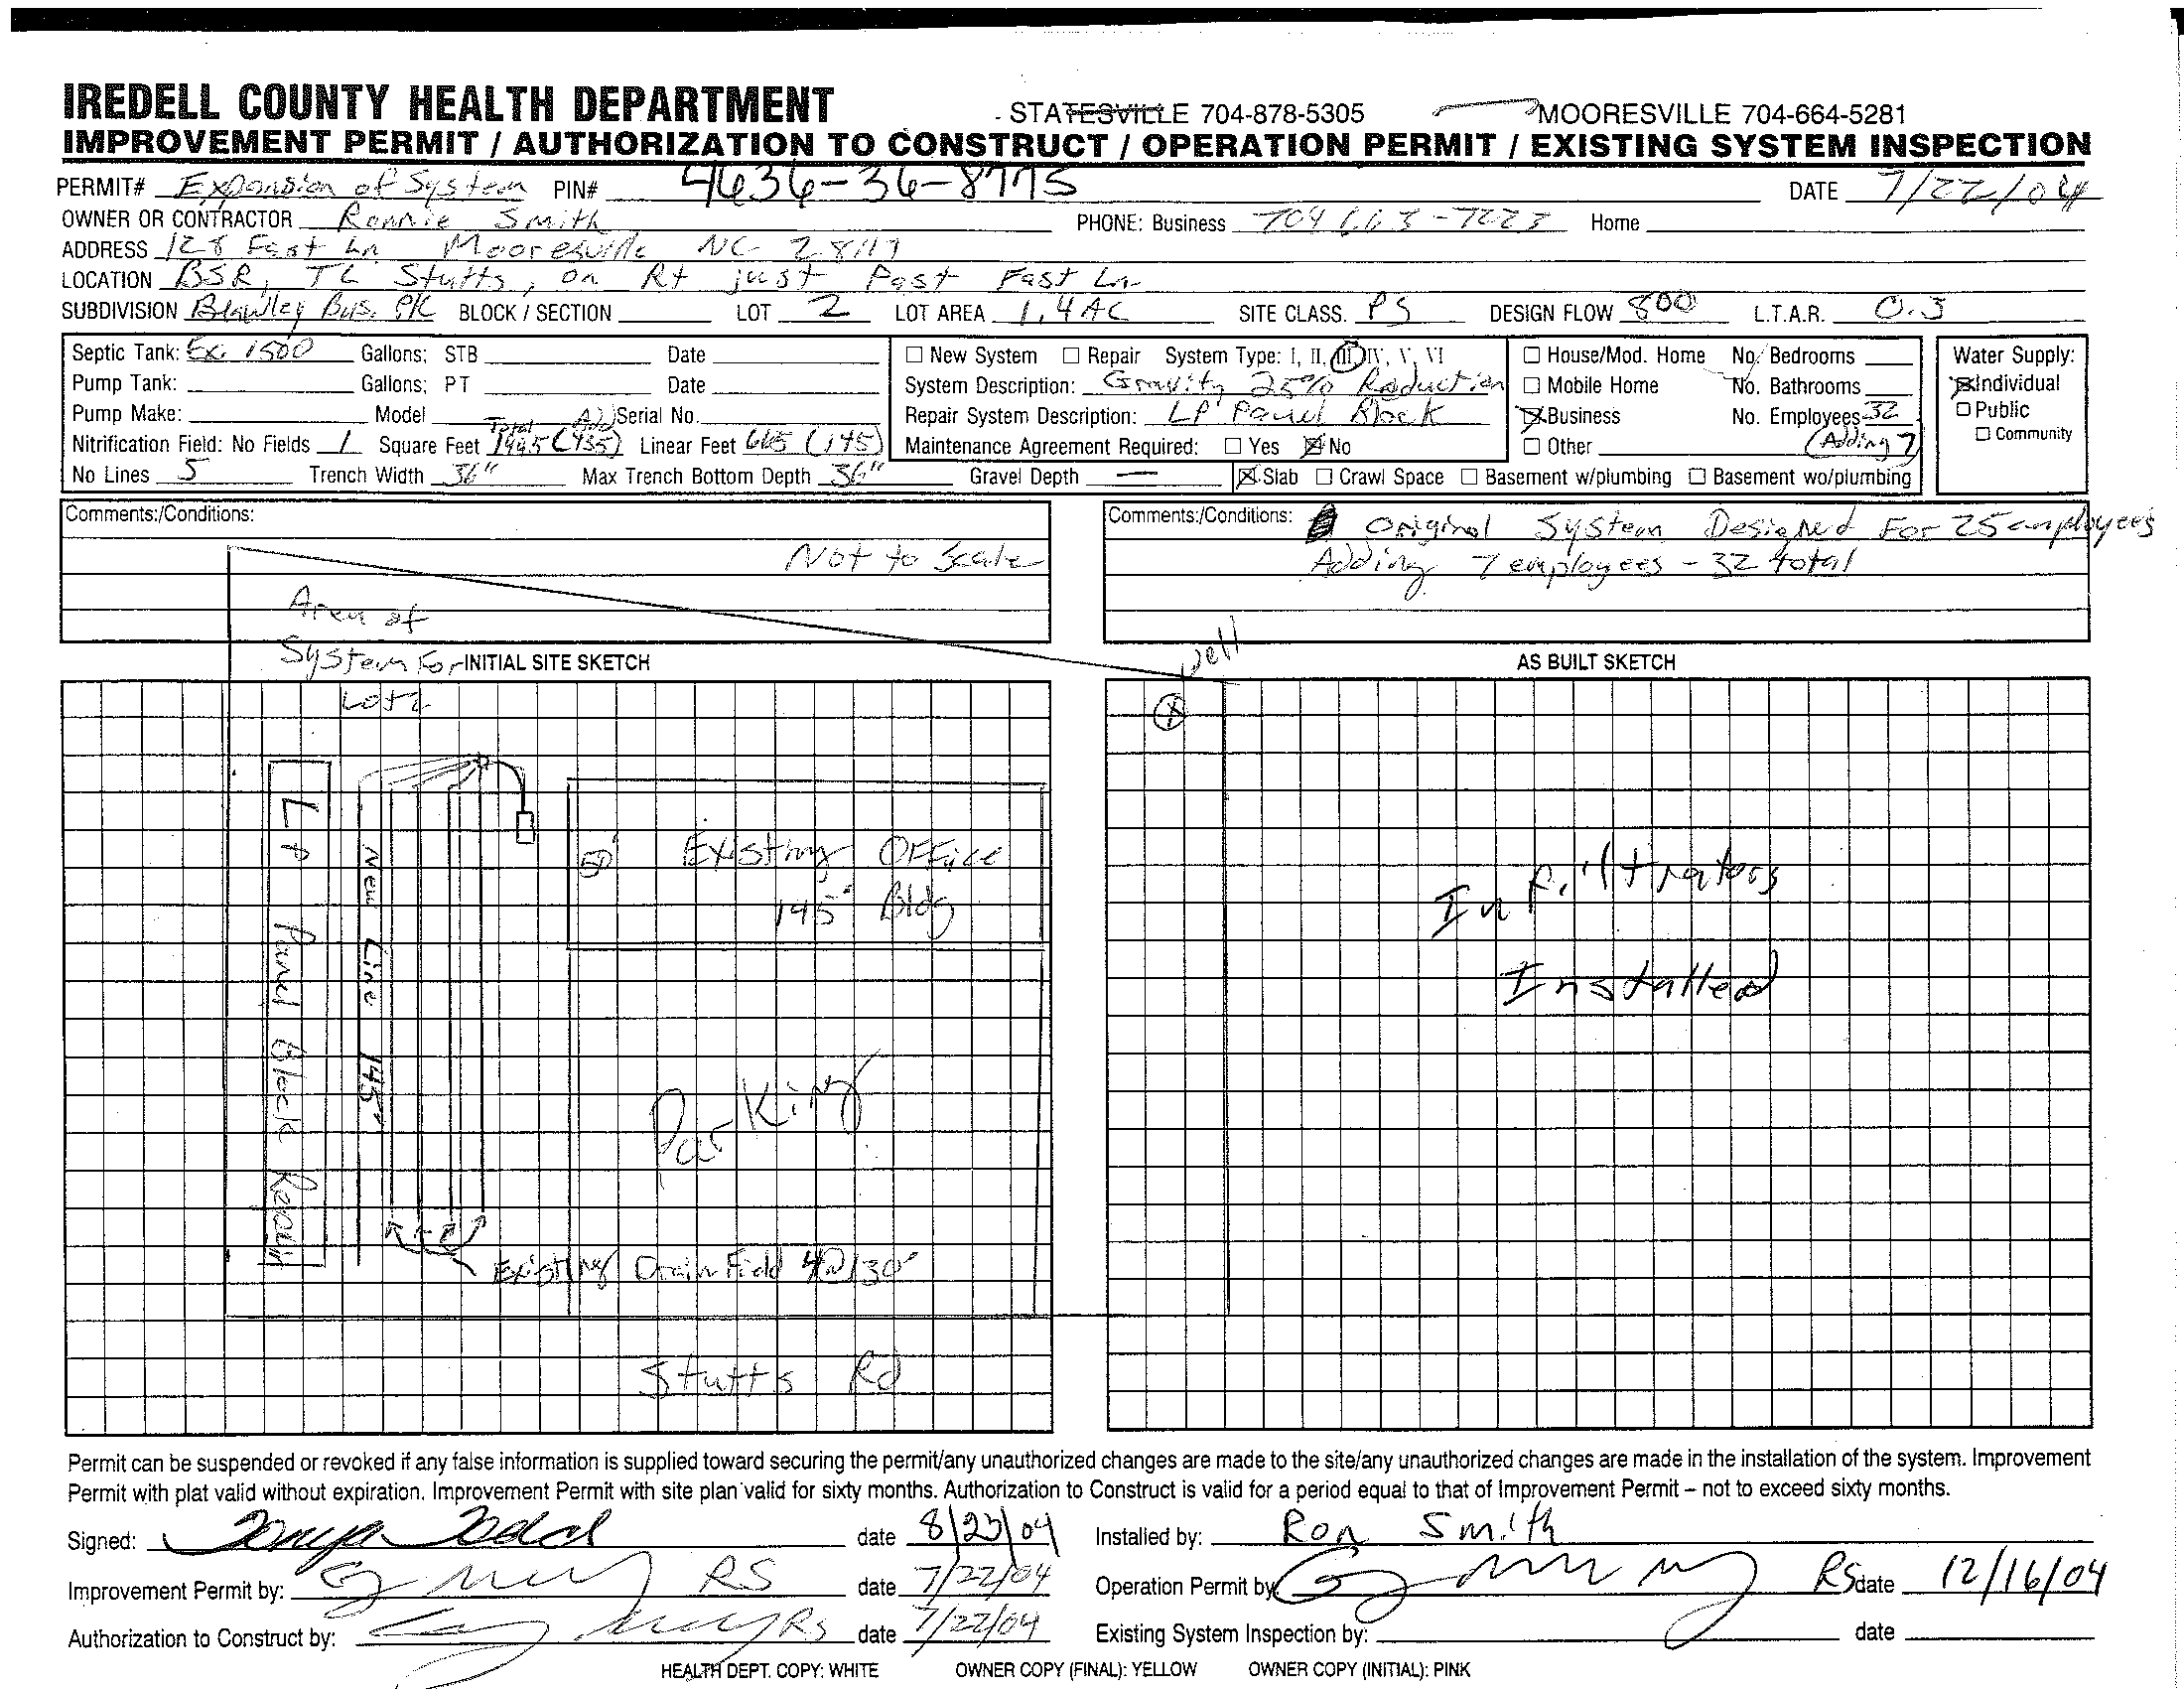 IREDELL COUNTY HEALTH DEPARTMENT STATESVILLE 704-878-5305 MOORESVILLE 704-664-5281
IMPROVEMENT PERMIT / AUTHORIZATION TO CONSTRUCT / OPERATION PERMIT / EXISTING SYSTEM INSPECTION
PERMIT# Expansion of System PIN# 4636-36-8775 DATE 7/22/04
OWNER OR CONTRACTOR Ronnie Smith PHONE: Business 704 663-7223 Home
ADDRESS 128 Fast Ln Mooresville NC 28117
LOCATION BSR, TL Stutts, on Rt just Past Fast Ln
SUBDIVISION Brawley Bus. PK BLOCK / SECTION LOT 2 LOT AREA 1.4 AC SITE CLASS. PS DESIGN FLOW 800 L.T.A.R. 0.3
Septic Tank: Ex. 1500 Gallons; STB Date
Pump Tank: Gallons; PT Date
Pump Make: Model Serial No.
Total
Nitrification Field: No Fields 1 Square Feet (435) Linear Feet 665 (145)
No Lines 5 Trench Width 36" Max Trench Bottom Depth 36" Gravel Depth —
New System Repair System Type: I, II, III, IV, V, VI
System Description: Gravity 25% Reduction
Repair System Description: LP Panel Block
Maintenance Agreement Required: Yes No
Slab Crawl Space Basement w/plumbing Basement wo/plumbing
House/Mod. Home No. Bedrooms
Mobile Home No. Bathrooms
Business No. Employees 32
Other (Adding 7)
Water Supply:
Individual
Public
Community
Comments:/Conditions:
Not to Scale
Area of
System For
Lot 2
Comments:/Conditions: Original System Designed For 25 employees
Adding 7 employees - 32 total
INITIAL SITE SKETCH
AS BUILT SKETCH
Well
LP Panel Block Repair
New Line 145'
Existing Office
145' Bldg
Parking
Existing Drain Field 4@130'
Stutts Rd
Infiltrators
Installed
Permit can be suspended or revoked if any false information is supplied toward securing the permit/any unauthorized changes are made to the site/any unauthorized changes are made in the installation of the system. Improvement
Permit with plat valid without expiration. Improvement Permit with site plan valid for sixty months. Authorization to Construct is valid for a period equal to that of Improvement Permit – not to exceed sixty months.
Signed: date 8/23/04 Installed by: Ron Smith
Improvement Permit by: RS date 7/22/04 Operation Permit by: RS date 12/16/04
Authorization to Construct by: RS date 7/22/04 Existing System Inspection by: date
HEALTH DEPT. COPY: WHITE OWNER COPY (FINAL): YELLOW OWNER COPY (INITIAL): PINK